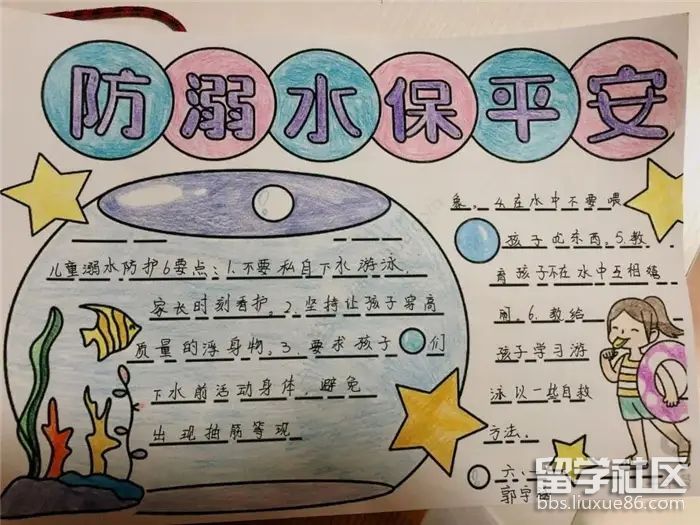 防溺水保平安
儿童溺水防护6要点:1.不要私自下水游泳,
家长时刻看护。2.坚持让孩子穿高
质量的浮身物。3.要求孩子们
下水前活动身体,避免
出现抽筋等现
象。4.在水中不要喂
孩子吃东西。5.教
育孩子不在水中互相嬉
闹。6.教给
孩子学习游
泳以一些自救
方法。
六、
郭宇
留学社区
bbs.liuxue86.com